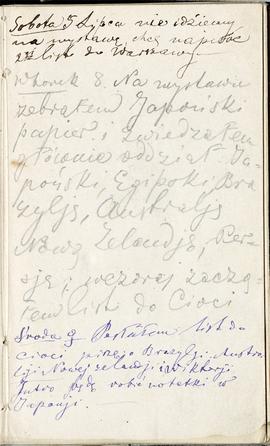 Sobota 5 Lipca nie idziemy
na wystawę chcę napisać
list do Warszawy.
Wtorek 8. Na wystawie
zebrałem Japoński
papier i zwiedzałem
głównie oddział Ja-
poński, Egipski, Bra
zylję, Australję
Nową Zelandję, Per-
sję; wczoraj zaczą-
łem list do Cioci
Środa 9 Posłałem list do
cioci piszę o Brazylji, Austra
lji Nowej Zelandji i Wiktorji
Jutro będę robić notatki w
Japonji.